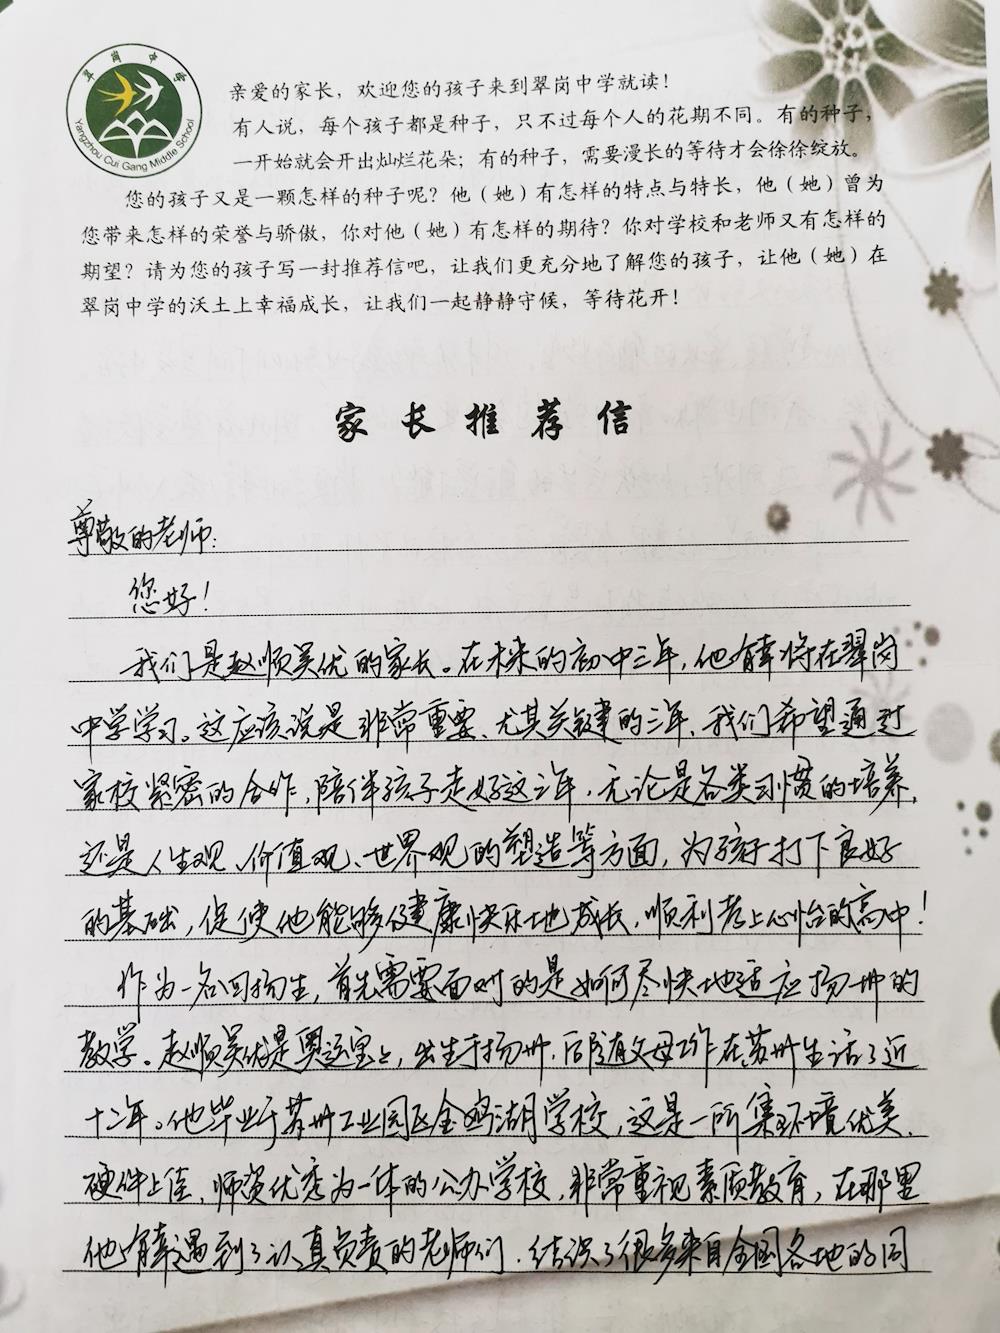 翠岗中学
Yangzhou Cui Gang Middle School
亲爱的家长，欢迎您的孩子来到翠岗中学就读！
有人说，每个孩子都是种子，只不过每个人的花期不同。有的种子，
一开始就会开出灿烂花朵；有的种子，需要漫长的等待才会徐徐绽放。
您的孩子又是一颗怎样的种子呢？他（她）有怎样的特点与特长，他（她）曾为
您带来怎样的荣誉与骄傲，你对他（她）有怎样的期待？你对学校和老师又有怎样的
期望？请为您的孩子写一封推荐信吧，让我们更充分地了解您的孩子，让他（她）在
翠岗中学的沃土上幸福成长，让我们一起静静守候，等待花开！
家长推荐信
尊敬的老师：
您好！
我们是赵顺吴优的家长。在未来的初中三年，他有幸将在翠岗
中学学习。这应该说是非常重要、尤其关键的三年，我们希望通过
家校紧密的合作，陪伴孩子走好这三年，无论是各类习惯的培养，
还是人生观、价值观、世界观的塑造等方面，为孩子打下良好
的基础，促使他能够健康快乐地成长，顺利考上心怡的高中！
作为一名回扬生，首先需要面对的是如何尽快地适应扬州的
教学。赵顺吴优是奥运宝宝，出生于扬州，后随父母工作在苏州生活了近
十二年。他毕业于苏州工业园区金鸡湖学校，这是一所集环境优美、
硬件上佳、师资优秀为一体的公办学校，非常重视素质教育，在那里
他有幸遇到了认真负责的老师们，结识了很多来自全国各地的同